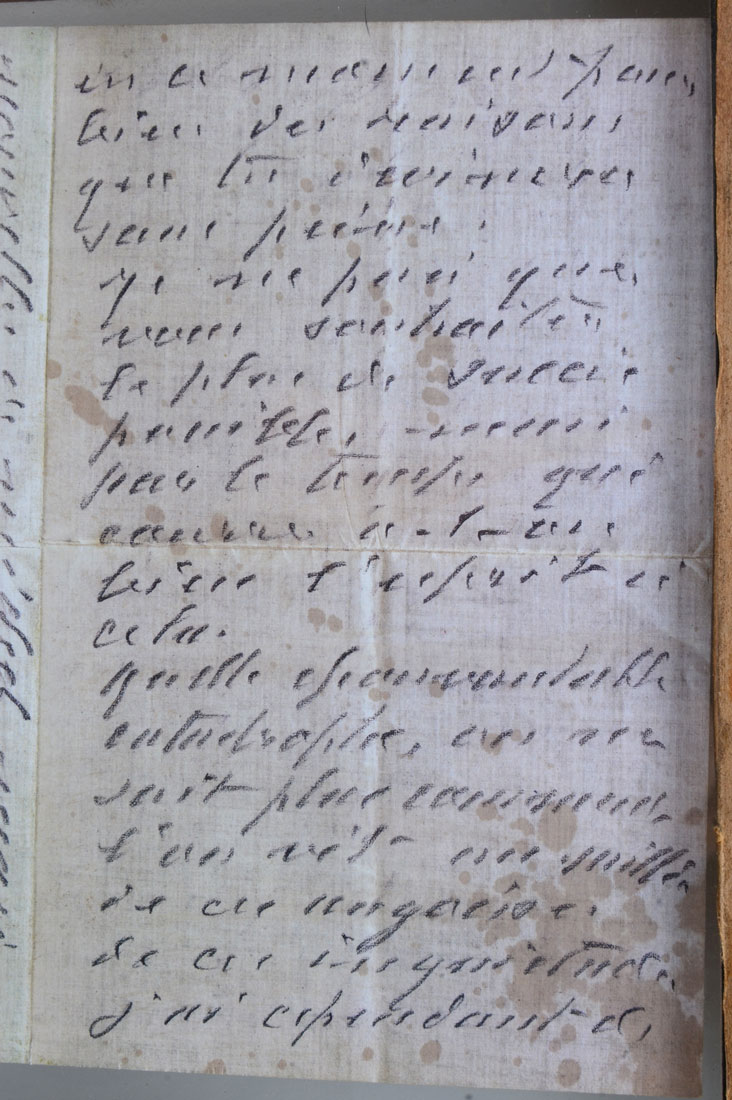 en ce moment pour
bien des raisons
que tu devineras
sans peine.
je ne puis que
vous souhaiter
le plus de succès
possible, mais
par le temps qui
court a-t-on
bien l'esprit à
cela.
Quelle épouvantable
catastrophe, on ne
sait plus comment
l'on vit au milieu
de ces angoisses
de ces inquiétudes
j'ai cependant de